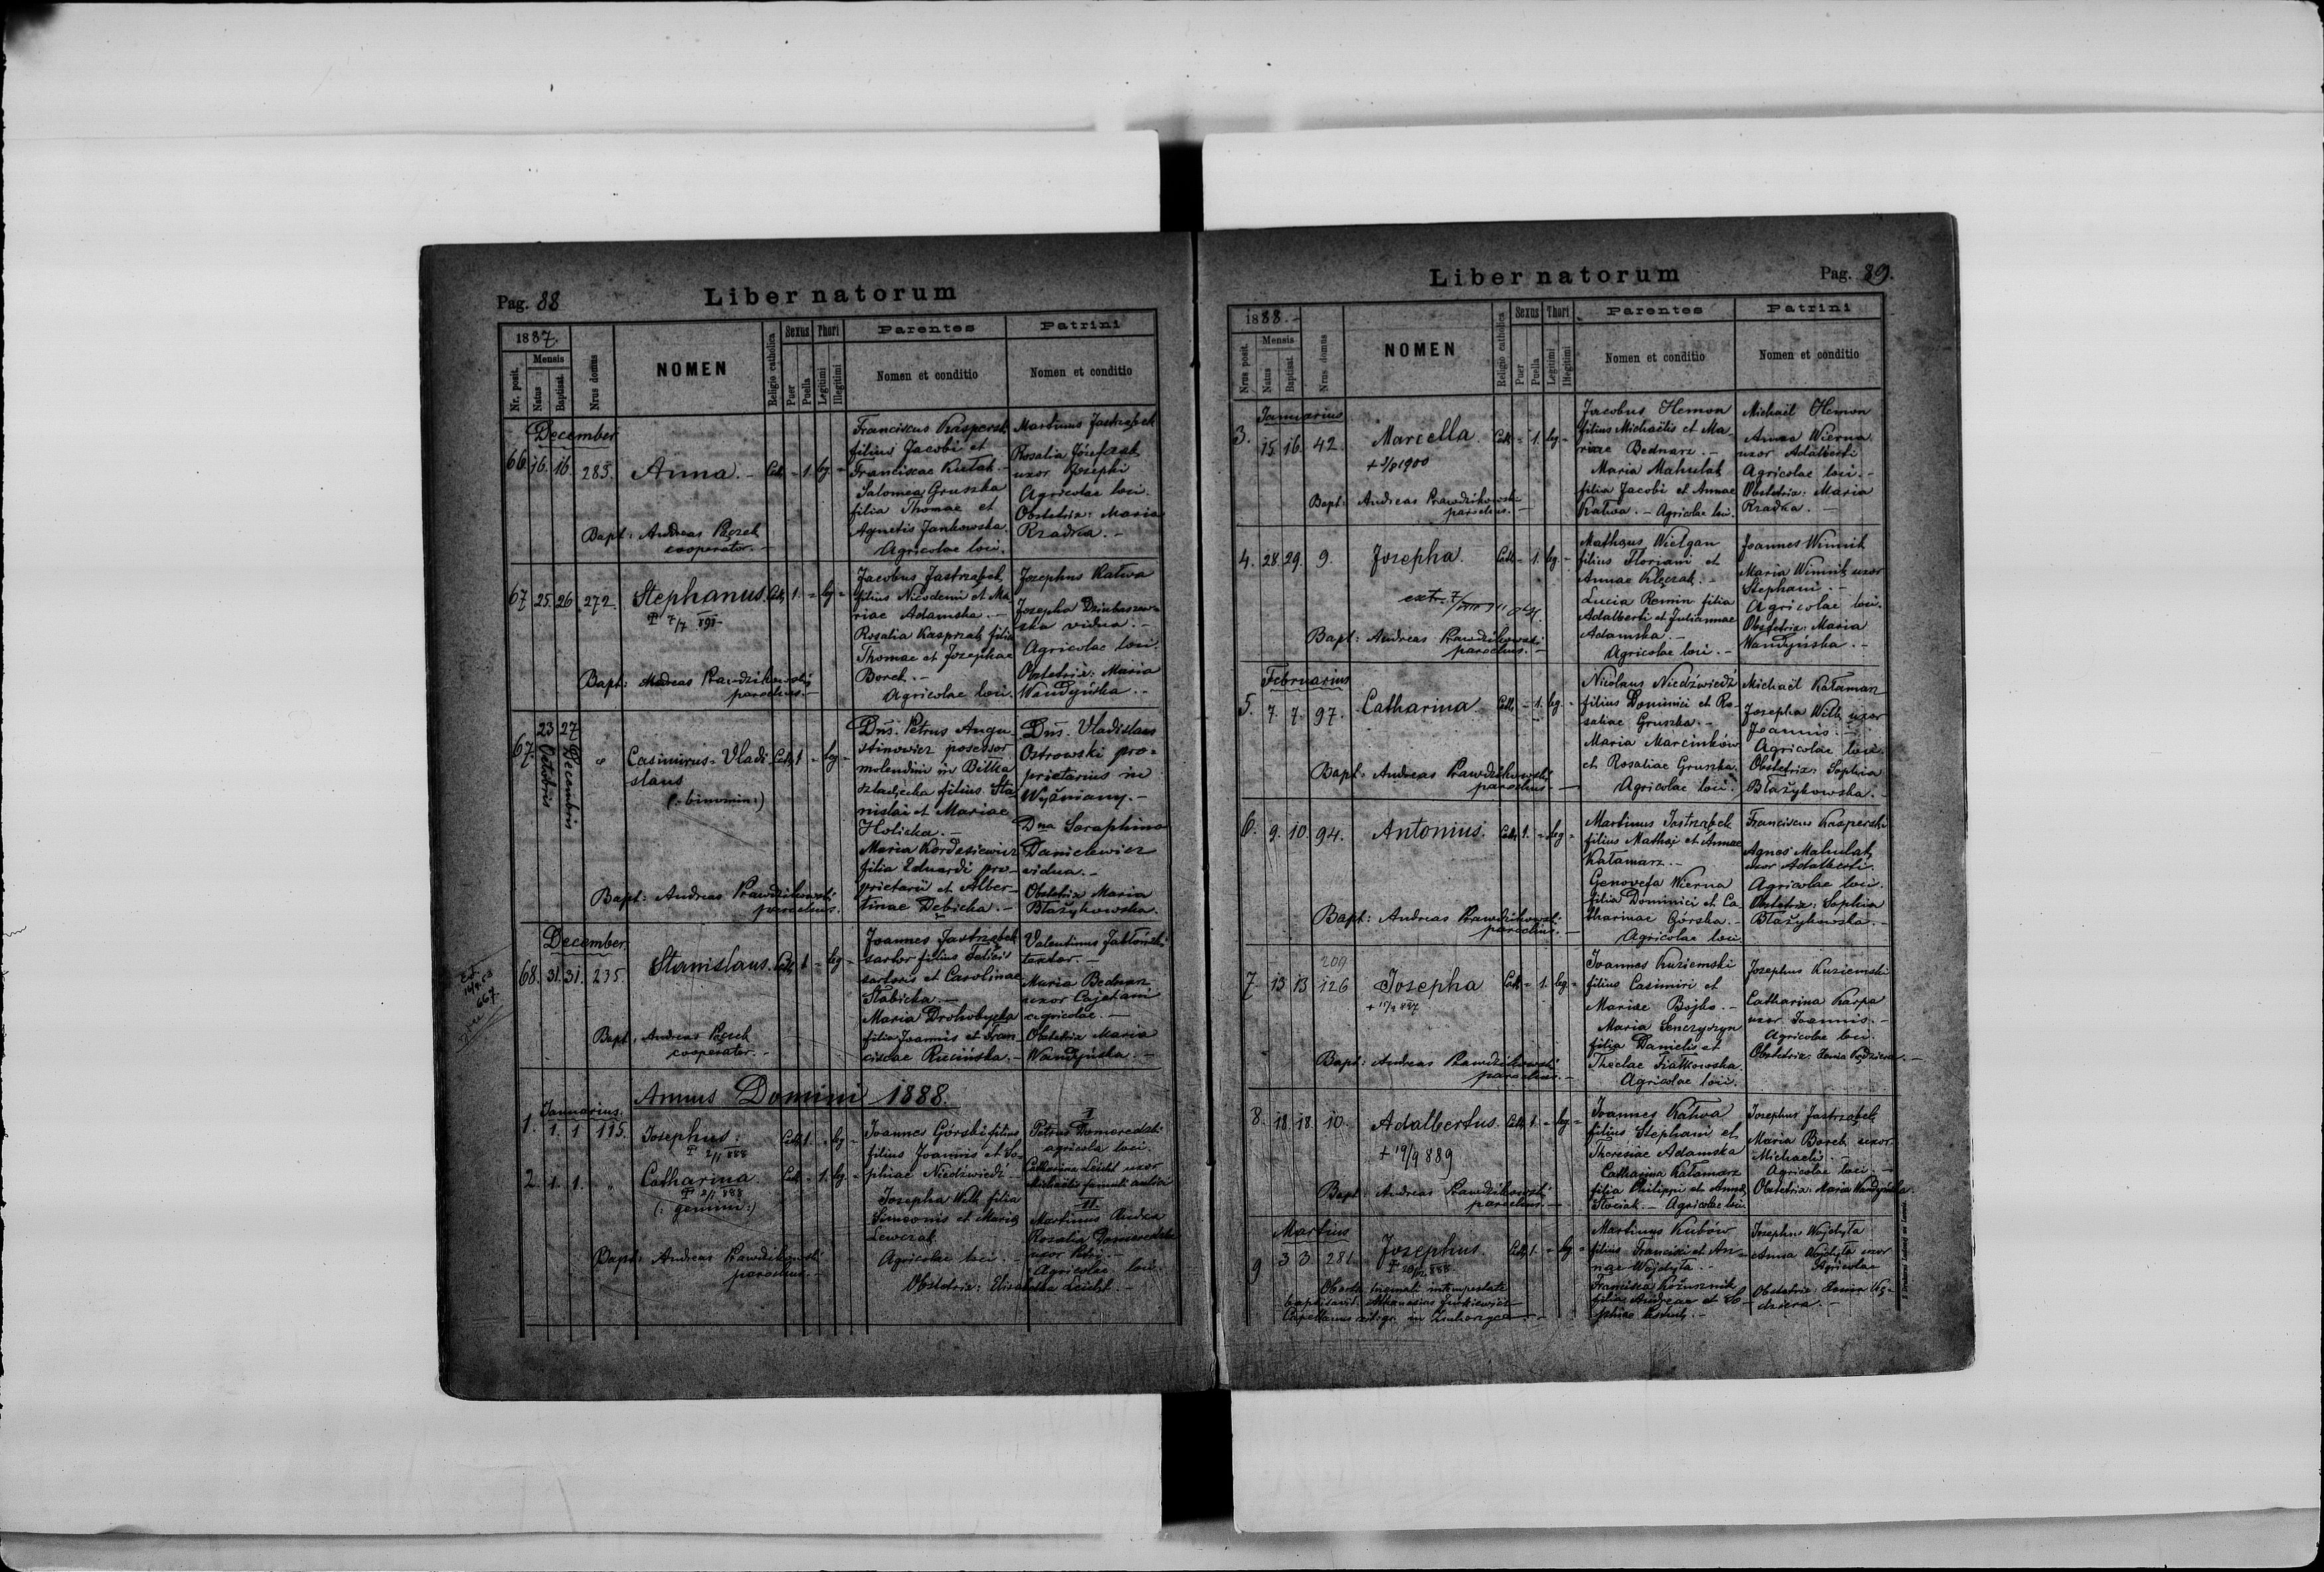 Pag. 88
Liber natorum
1887.
Mensis
Nr. posit.
Natus
Baptisat.
Nrus domus
NOMEN
Religio catholica
Sexus
Puer
Puella
Thori
Legitimi
Illegitimi
Parentes
Nomen et conditio
Patrini
Nomen et conditio
December
66. 16. 16. 285. Anna. - Cath. - 1. leg. -
Franciscus Kaspersk
filius Jacobi et
Franciscae Kułak. -
Salomea Gruszka
filia Thomae et
Agnetis Jankowska.
Agricolae loci.
Martinus Jastrząbek
Rosalia Józefczak
uxor Josephi
Agricolae loci.
Obstetrix: Maria
Rzadka. -
Bapt: Andreas Pączek
cooperator. -
67. 25. 26. 272. Stephanus. Cath. 1. - leg. -
Jacobus Jastrząbek
filius Nicodemi et Ma-
riae Adamska. -
Rosalia Kasprzak filia
Thomae et Josephae
Borek. -
Agricolae loci.
Josephus Kałwa
Josepha Dziubaszew-
ska vidua. -
Agricolae loci.
Obstetrix: Maria
Wandyńska. -
Bapt: Andreas Prawdzikowski
parochus. -
67. 23 Octobris 27 Decembris " Casimirus - Vladi-
slaus
(: binomin :)
Cath. 1 - leg -
Dns. Petrus Augu-
stinowicz possessor
molendini in Biłka
szlachecka filius Sta
nislai et Mariae
Holicka. -
Maria Kordasiewicz
filia Eduardi pro-
prietarii et Alber-
tinae Dębicka. -
Dns. Vladislaus
Ostrowski pro-
prietarius in
Wyżniany. -
Dna Seraphina
Danielewicz
vidua. -
Obstetrix Maria
Błażykowska.
Bapt: Andreas Prawdzikowski
parochus.
December
68. 31. 31. 235. Stanislaus. Cath. 1 - leg -
Joannes Jastrząbek
sartor filius Felicis
sartoris et Carolinae
Słabicka. -
Maria Drohobycka
filia Joannis et Fran-
ciscae Rucińska. -
Valentinus Jabłoński
textor. -
Maria Bednarz
uxor Cajetani
agricolae. -
Obstetrix Maria
Wandyńska. -
Bapt: Andreas Pączek
cooperator. -
Annus Domini 1888.
Januarius.
1. 1. 1 115. Josephus. Cath. 1. - leg -
2/1 888
2. 1. 1. " Catharina. Cath. - 1. leg. -
2/1 888
(: gemini :)
Joannes Górski filius
filius Joannis et So-
phiae Niedźwiedź -
Josepha Wilk filia
Simeonis et Mariae
Lewczak.
Agricolae loci. -
I
Petrus Domeredzki
agricola loci.
Catharina Leicht uxor
Michaelis famuli aulici
II.
Martinus Kudra
Rosalia Domeredzka
uxor Petri. -
Agricolae loci.
Obstetrix: Elisabetha Leicht. -
Bapt: Andreas Prawdzikowski
parochus. -
Liber natorum
Pag. 89.
1888. -
Mensis
Nrus posit.
Natus
Baptisat.
Nrus domus
NOMEN
Religio catholica
Sexus
Puer
Puella
Thori
Legitimi
Illegitimi
Parentes
Nomen et conditio
Patrini
Nomen et conditio
Januarius
3. 15. 16. 42. Marcella. Cath. - 1. leg -
Jacobus Hemon
filius Michaëlis et Ma-
riae Bednarz. -
Maria Mahulak
filia Jacobi et Annae
Kałwa. - Agricolae loci.
Michaël Hemon
Anna Wierna
uxor Adalberti
Agricolae loci. -
Obstetrix: Maria
Rzadka. -
Bapt: Andreas Prawdzikowski
parochus. -
4. 28. 29. 9. Josepha. Cath. - 1. leg. -
Mathaeus Wielgan
filius Floriani et
Annae Klęczak. -
Lucia Remin filia
Adalberti et Juliannae
Adamska. -
Agricolae loci. -
Joannes Winnik
Maria Winnik uxor
Stephani. -
Agricolae loci.
Obstetrix: Maria
Wandyńska. -
Bapt: Andreas Prawdzikowski
parochus. -
Februarius
5. 7. 7. 97. Catharina. Cath. - 1. leg. -
Nicolaus Niedźwiedź
filius Dominici et Ro-
saliae Gruszka. -
Maria Marcinków
et Rosaliae Gruszka.
Agricolae loci.
Michaël Kałamarz
Josepha Wilk uxor
Joannis. -
Agricolae loci.
Obstetrix: Sophia
Błażykowska. -
Bapt: Andreas Prawdzikowski
parochus. -
6. 9. 10. 94. Antonius. Cath. 1. - leg -
Martinus Jastrząbek
filius Mathaei et Annae
Kałamarz. -
Genovefa Wierna
filia Dominici et Ca-
tharinae Górska. -
Agricolae loci.
Franciscus Kasperski
Agnes Mahulak
uxor Adalberti.
Agricolae loci.
Obstetrix: Sophia
Błażykowska. -
Bapt: Andreas Prawdzikowski
parochus. -
209
7. 13 13 126 Josepha Cath. - 1. leg. -
Joannes Kuziemski
filius Casimiri et
Mariae Bojko. -
Maria Senczyszyn
filia Danielis et
Theclae Fiałkowska.
Agricolae loci.
Josephus Kuziemski
Catharina Karpa
uxor Joannis. -
Agricolae loci.
Bapt: Andreas Prawdzikowski
parochus. -
8. 18. 18. 10. Adalbertus. Cath. 1. - leg -
+ 19/9 889
Joannes Kałwa
filius Stephani et
Theresiae Adamska
Catharina Kałamarz
filia Philippi et Annae
Agricolae loci.
Josephus Jastrząbek
Maria Borek uxor
Michaelis. -
Agricolae loci. -
Obstetrix: Maria Wandyńska.
Bapt: Andreas Prawdzikowski
parochus. -
Martius
9 3 3 281 Josephus. Cath. 1. - leg -
Martinus Kubów
filius Francisci et An-
nae Wojdyła. -
Franciscus Kożusznik
filia Andreae et So-
phiae
Josephus Wojdyła
Anna Wojdyła uxor
Agricolae
Oborta hyemali intempestate
baptisavit Athanasius Jurkiewicz
Capellanus rit. gr. in Czuhorzyca. -